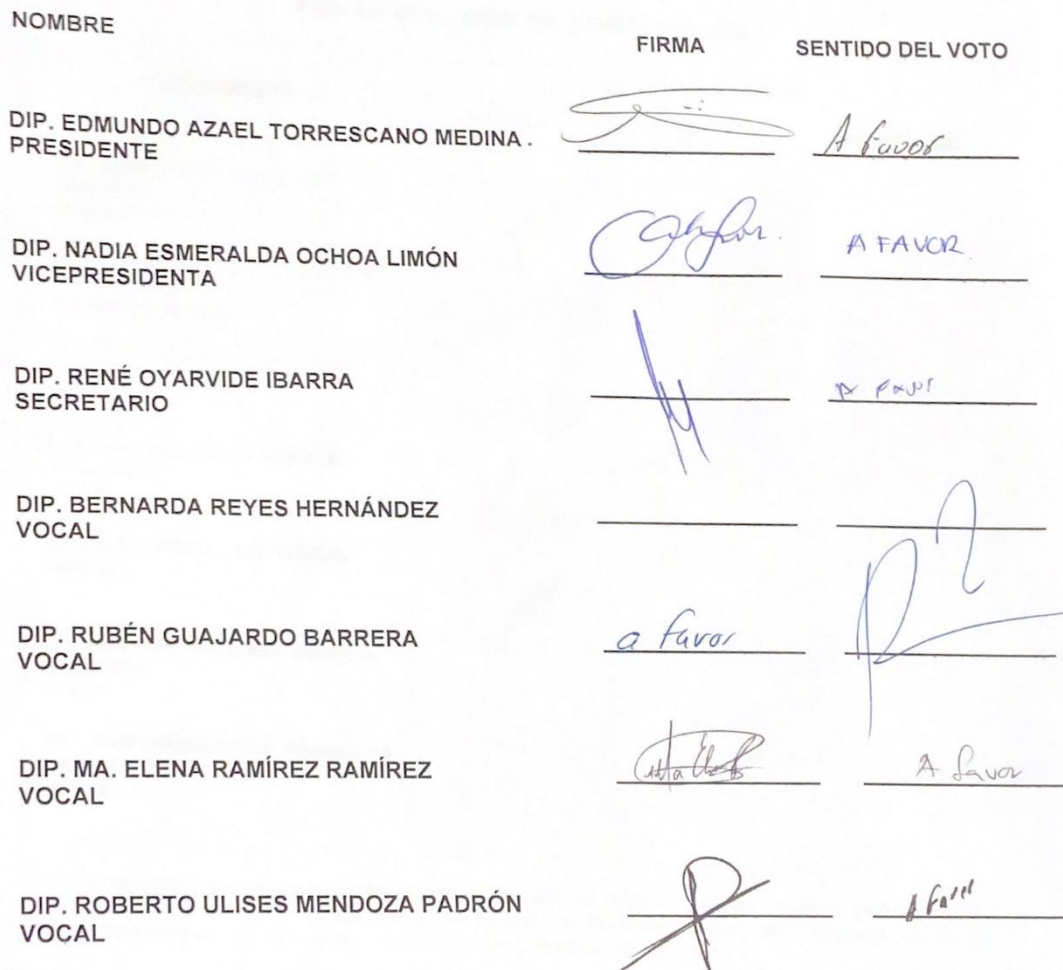 NOMBRE
FIRMA SENTIDO DEL VOTO
DIP. EDMUNDO AZAEL TORRESCANO MEDINA .
PRESIDENTE
A favor
DIP. NADIA ESMERALDA OCHOA LIMÓN
VICEPRESIDENTA
A FAVOR
DIP. RENÉ OYARVIDE IBARRA
SECRETARIO
A favor
DIP. BERNARDA REYES HERNÁNDEZ
VOCAL
DIP. RUBÉN GUAJARDO BARRERA
VOCAL
a favor
DIP. MA. ELENA RAMÍREZ RAMÍREZ
VOCAL
A favor
DIP. ROBERTO ULISES MENDOZA PADRÓN
VOCAL
A favor